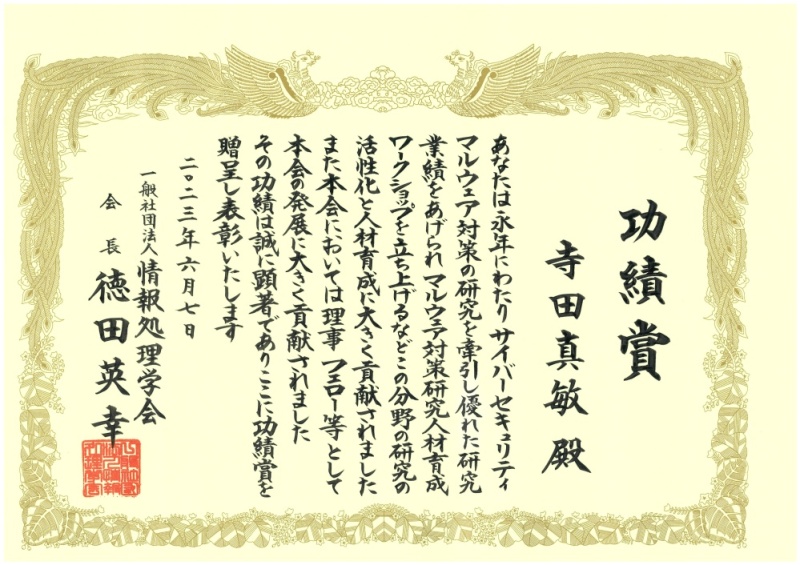 功績賞
寺田真敏 殿
あなたは永年にわたり サイバーセキュリティ
マルウェア対策の研究を牽引し優れた研究
業績をあげられ マルウェア対策研究人材育成
ワークショップを立ち上げるなどこの分野の研究の
活性化と人材育成に大きく貢献されました
また本会においては理事 フェロー等として
本会の発展に大きく貢献されました
その功績は誠に顕著でありここに功績賞を
贈呈し表彰いたします
二〇二三年六月七日
一般社団法人 情報処理学会
会長 徳田英幸